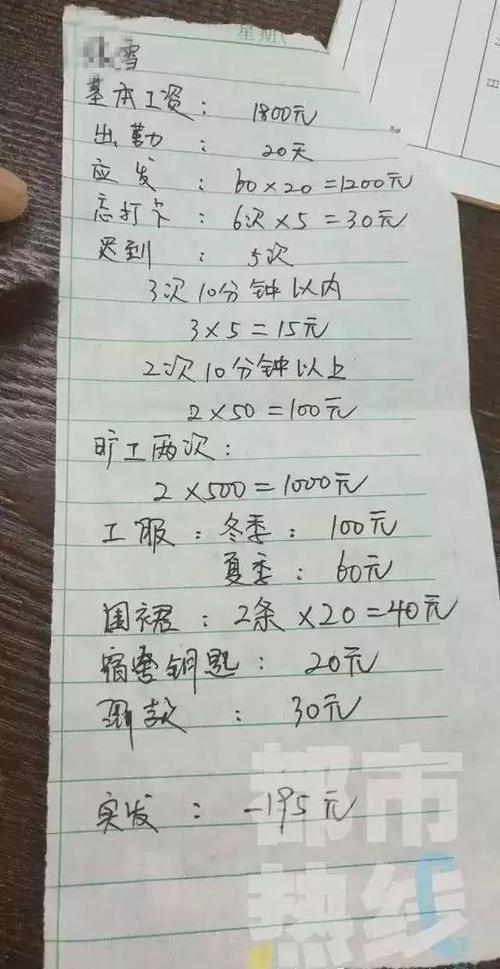 星期
雪
基本工资：1800元
出勤：20天
应发：60×20=1200元
忘打卡：6次×5=30元
迟到：5次
3次10分钟以内
3×5=15元
2次10分钟以上
2×50=100元
旷工两次：
2×500=1000元
工服：冬季：100元
夏季：60元
围裙：2条×20=40元
宿舍钥匙：20元
款：30元
实发：-195元
都市
热线